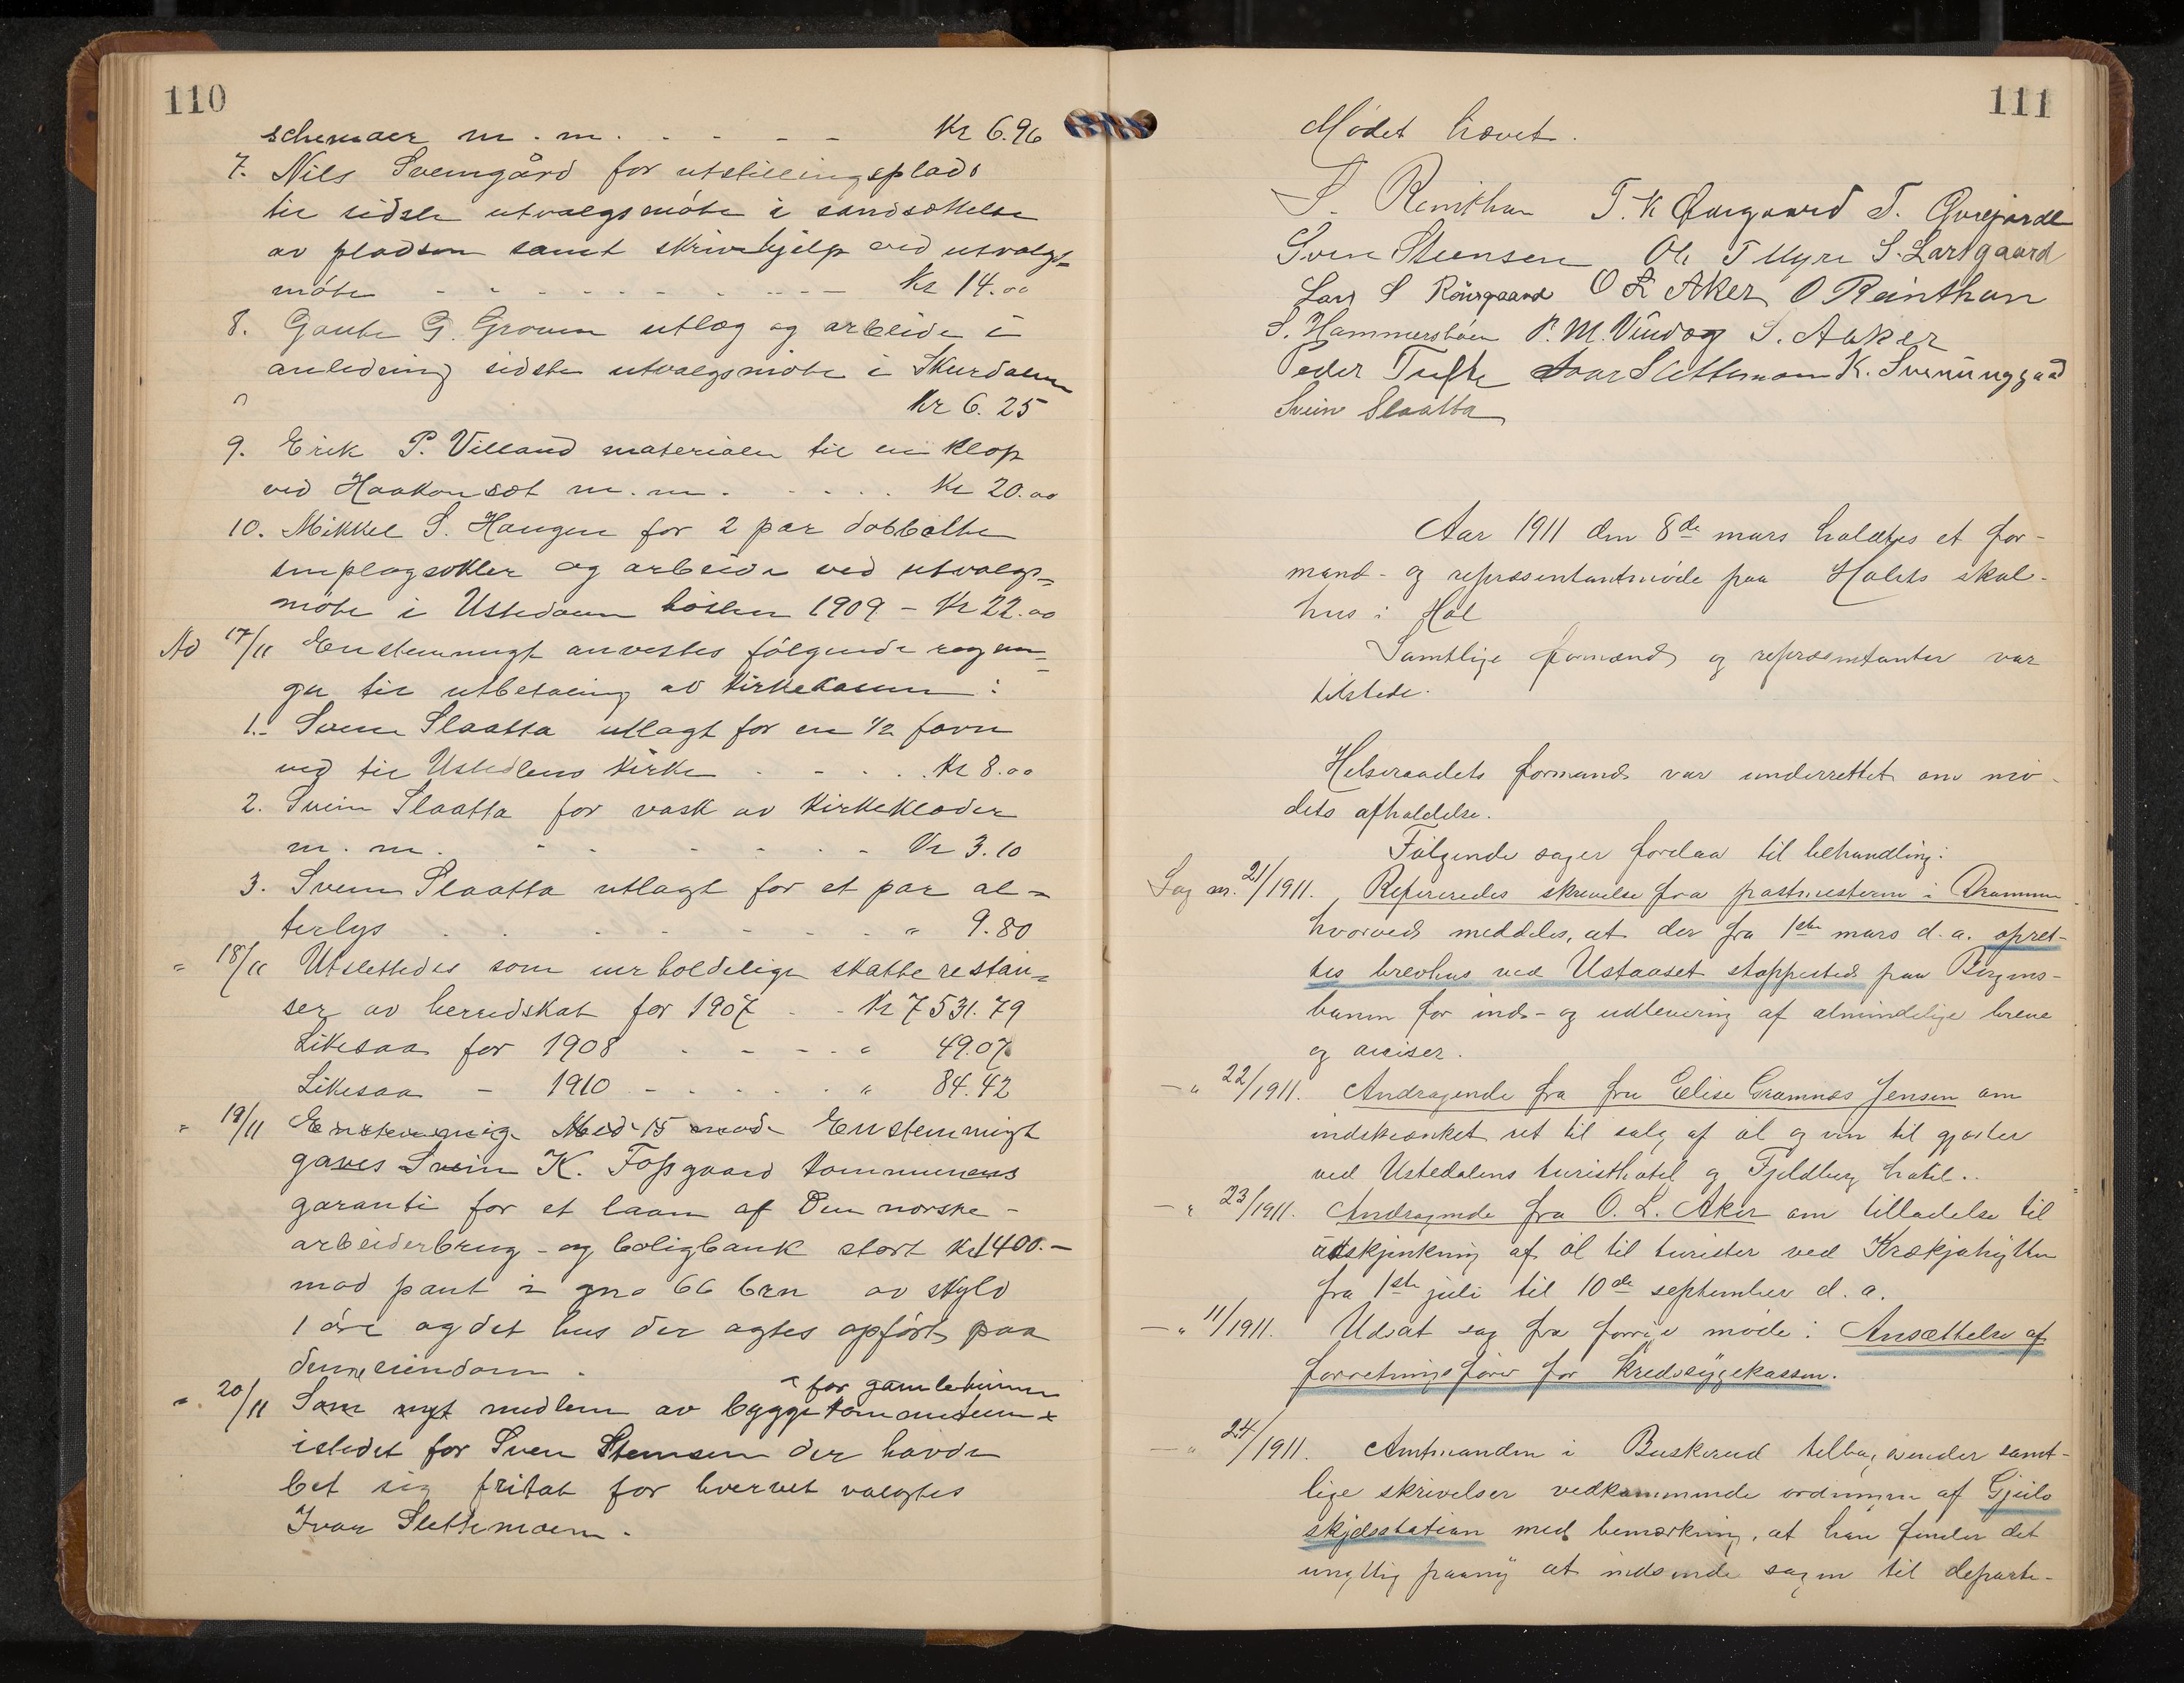 110
schemaer m. m. - - - - Kr 6.96
7. Nils Sveingård for utstillingsplads
til sidste utvalgsmöte i iandsættelse
av pladsen samt skrivehjelp ved utvalgs=
möte - - - - - - - - - Kr 14.00
8. Gaute G. Grouen utlæg og arbeide i
anledning sidste utvalgsmöte i Skurdalen
Kr 6.25
9. Erik P. Villand materialer til en klop
ved Haakonsæt m. m. . . . . Kr 20.00
10. Mikkel S. Haugen for 2 par dobbelte
og arbeide ved utvalgs=
möte i Ustedalen hösten 1909 - Kr 22.00
No 17/11 Enstemmigt anvistes fölgende regnin=
ger til utbetaling av kirkekassen :
1. Svein Slaatta utlagt for en 1/2 favn
ved til Ustedalens kirke - - . . Kr 8.00
2. Svein Slaatta for vask av kirkeklæder
m. m. - - - - - - Kr 3.10
3. Svein Slaatta utlagt for et par al=
terlys . . . - - - - . " 9.80
" 18/11 Utslettedes som uerholdelige skatterestan=
ser av herredskat for 1907 - - Kr 7531.79
Likesaa for 1908 . - - - " 49.07
Likesaa - 1910 - - . . . " 84.42
" 19/11 Enstemmig Med 15 mod Enstemmigt
gaves Svein K. Fossgaard kommunens
garanti for et laan af Den norske -
arbeiderbrug - og boligbank stort Kr 1400.-
mod pant i gno 66 brn av skyld
1 öre og det hus der agtes opfört paa
denne eiendom.
for gamlehjemmet
" 20/11 Som nyt medlem av byggekommiteen
istedet for Sven Stensen der havde
bet sig fritat for hvervet valgtes
Ivar Slettemoen.
111
Mödet hævet.
S. Reinthon T. K Örgaard T. Qvisgaard
Sven Steensen Ole T Myre S. Larsgaard
Lars S Rönsgaard O L Aker O Reinthon
S. Hammersböen P. M. Vindeg S. Aaker
Peder Tufte Ivar Slettemoen K. Sveinunggaard
Svein Slaatta
Aar 1911 den 8de mars holdtes et for-
mand- og repræsentantmöde paa Holets skole-
hus i Hol
Samtlige formænd og repræsentanter var
tilstede.
Helseraadets formand var underrettet om mö-
dets afholdelse.
Fölgende sager forelaa til behandling:
Sag nr. 21/1911. Refereredes skrivelse fra postmesteren i Drammen
hvorved meddeles, at der fra 1ste mars d. a. opret-
tes brevhus ved Ustaaset stoppested paa Bergens-
banen for ind- og udlevering af almindelige breve
og aviser.
- " 22/1911. Andragende fra fru Elise Gramnæs Jensen om
indskrænket ret til salg af öl og vin til gjester
ved Ustedalens turisthotel og Fjeldberg hotel..
- " 23/1911. Andragende fra O. L. Aker om tilladelse til
udskjenkning af öl til turister ved Krækjahytten
fra 1ste juli til 10de september d. a.
- " 11/1911. Udsat sag fra forrige möde: Ansættelse af
forretningsförer for Kredssygekassen.
- " 24/1911. Amtmanden i Buskerud tilbagesender samt-
lige skrivelser vedkommende ordningen af Gjeilo
skjdsstation med bemærkning, at han finder det
unyttig paany at indsende sagen til departe-